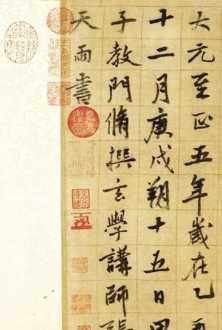 大元至正五年歲在乙
十二月庚戌朔十五日甲
子教門脩撰玄學講師張
天雨書